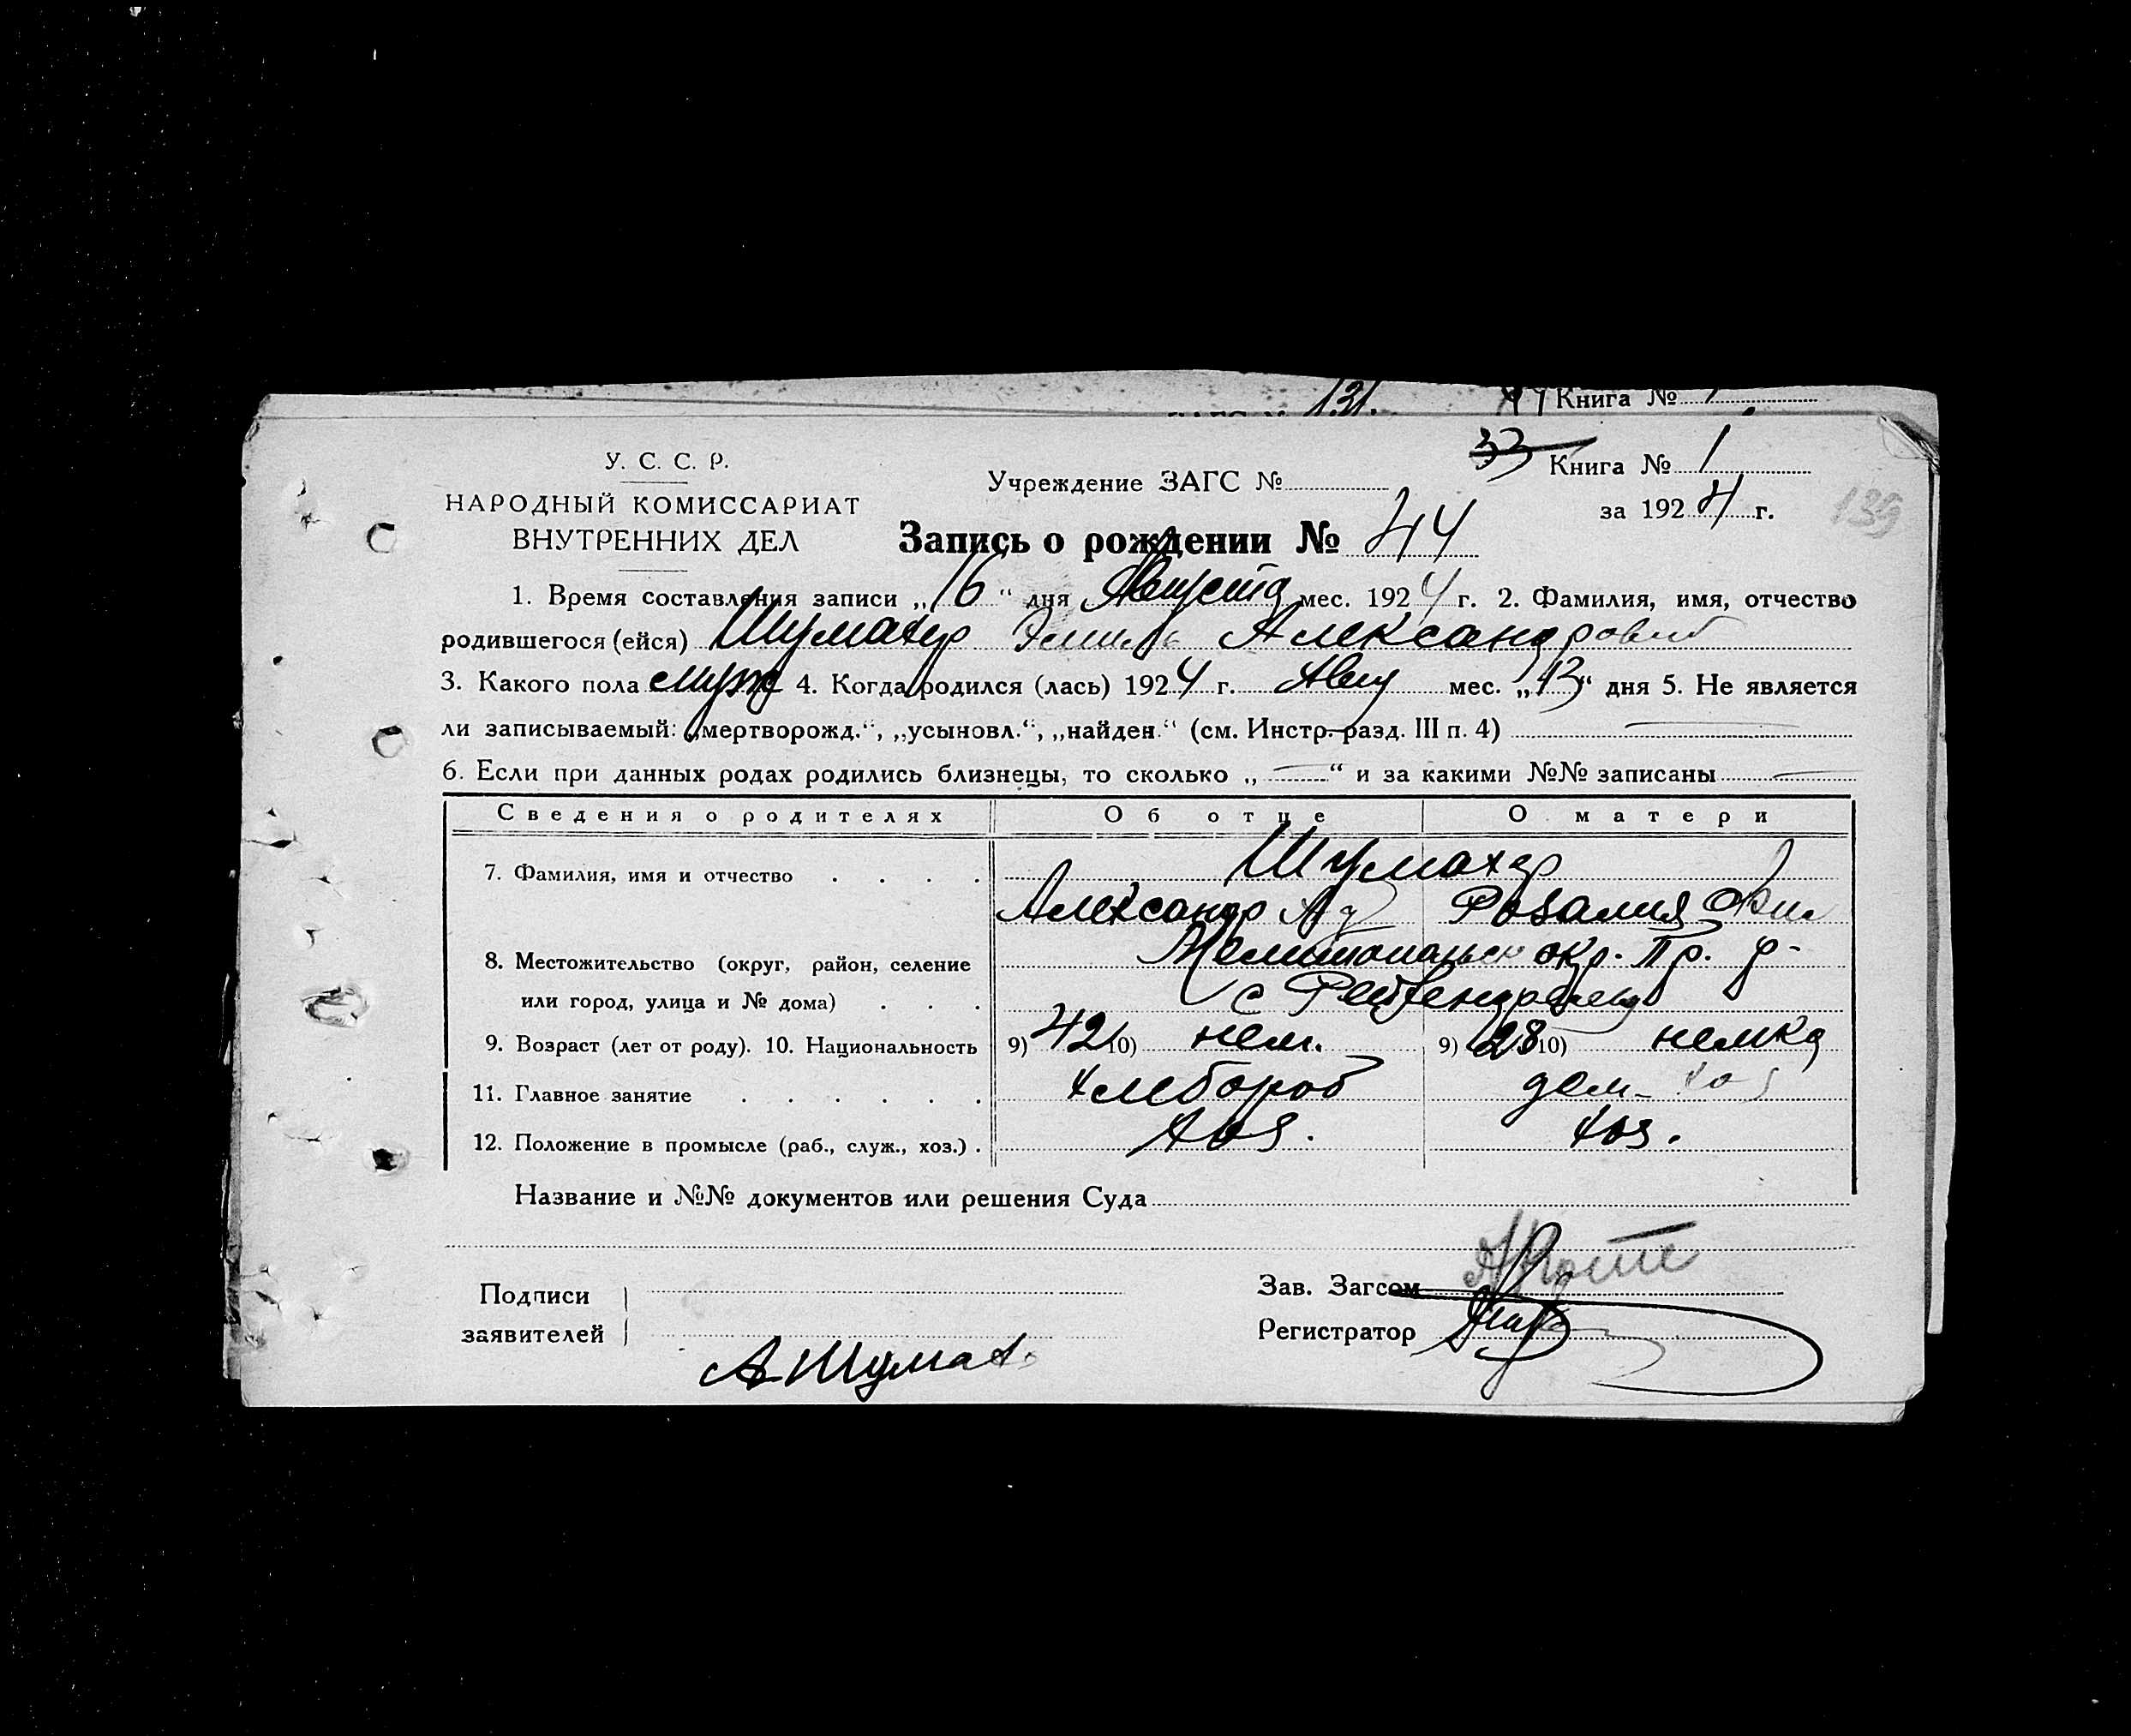 131. 44 Книга № 1
33 Книга № 1
У. С. С. Р.
Учреждение ЗАГС №
НАРОДНЫЙ КОМИССАРИАТ
за 1924 г. 139
ВНУТРЕННИХ ДЕЛ
Запись о рождении № 44
1. Время составления записи „16“ дня Августа мес. 1924 г. 2. Фамилия, имя, отчество
родившегося (ейся) Шумахер Эмиль Александрович
3. Какого пола муж 4. Когда родился (лась) 1924 г. Авгу мес. „13“ дня 5. Не является
ли записываемый: „мертворожд.“, „усыновл.“, „найден.“ (см. Инстр. разд. III п. 4)
6. Если при данных родах родились близнецы, то сколько „—“ и за какими №№ записаны —
Сведения о родителях Об отце О матери
Шумахер
7. Фамилия, имя и отчество
Александр Ад Розалия Фил
Мелитопольск окр. Пр. р-
8. Местожительство (округ, район, селение
или город, улица и № дома) с
9. Возраст (лет от роду). 10. Национальность 9) 42 10) нем. 9) 28 10) немка
11. Главное занятие хлебороб дом-хоз
12. Положение в промысле (раб., служ., хоз.) хоз. хоз.
Название и №№ документов или решения Суда
Подписи Зав. Загсом
заявителей Регистратор
А Шумах